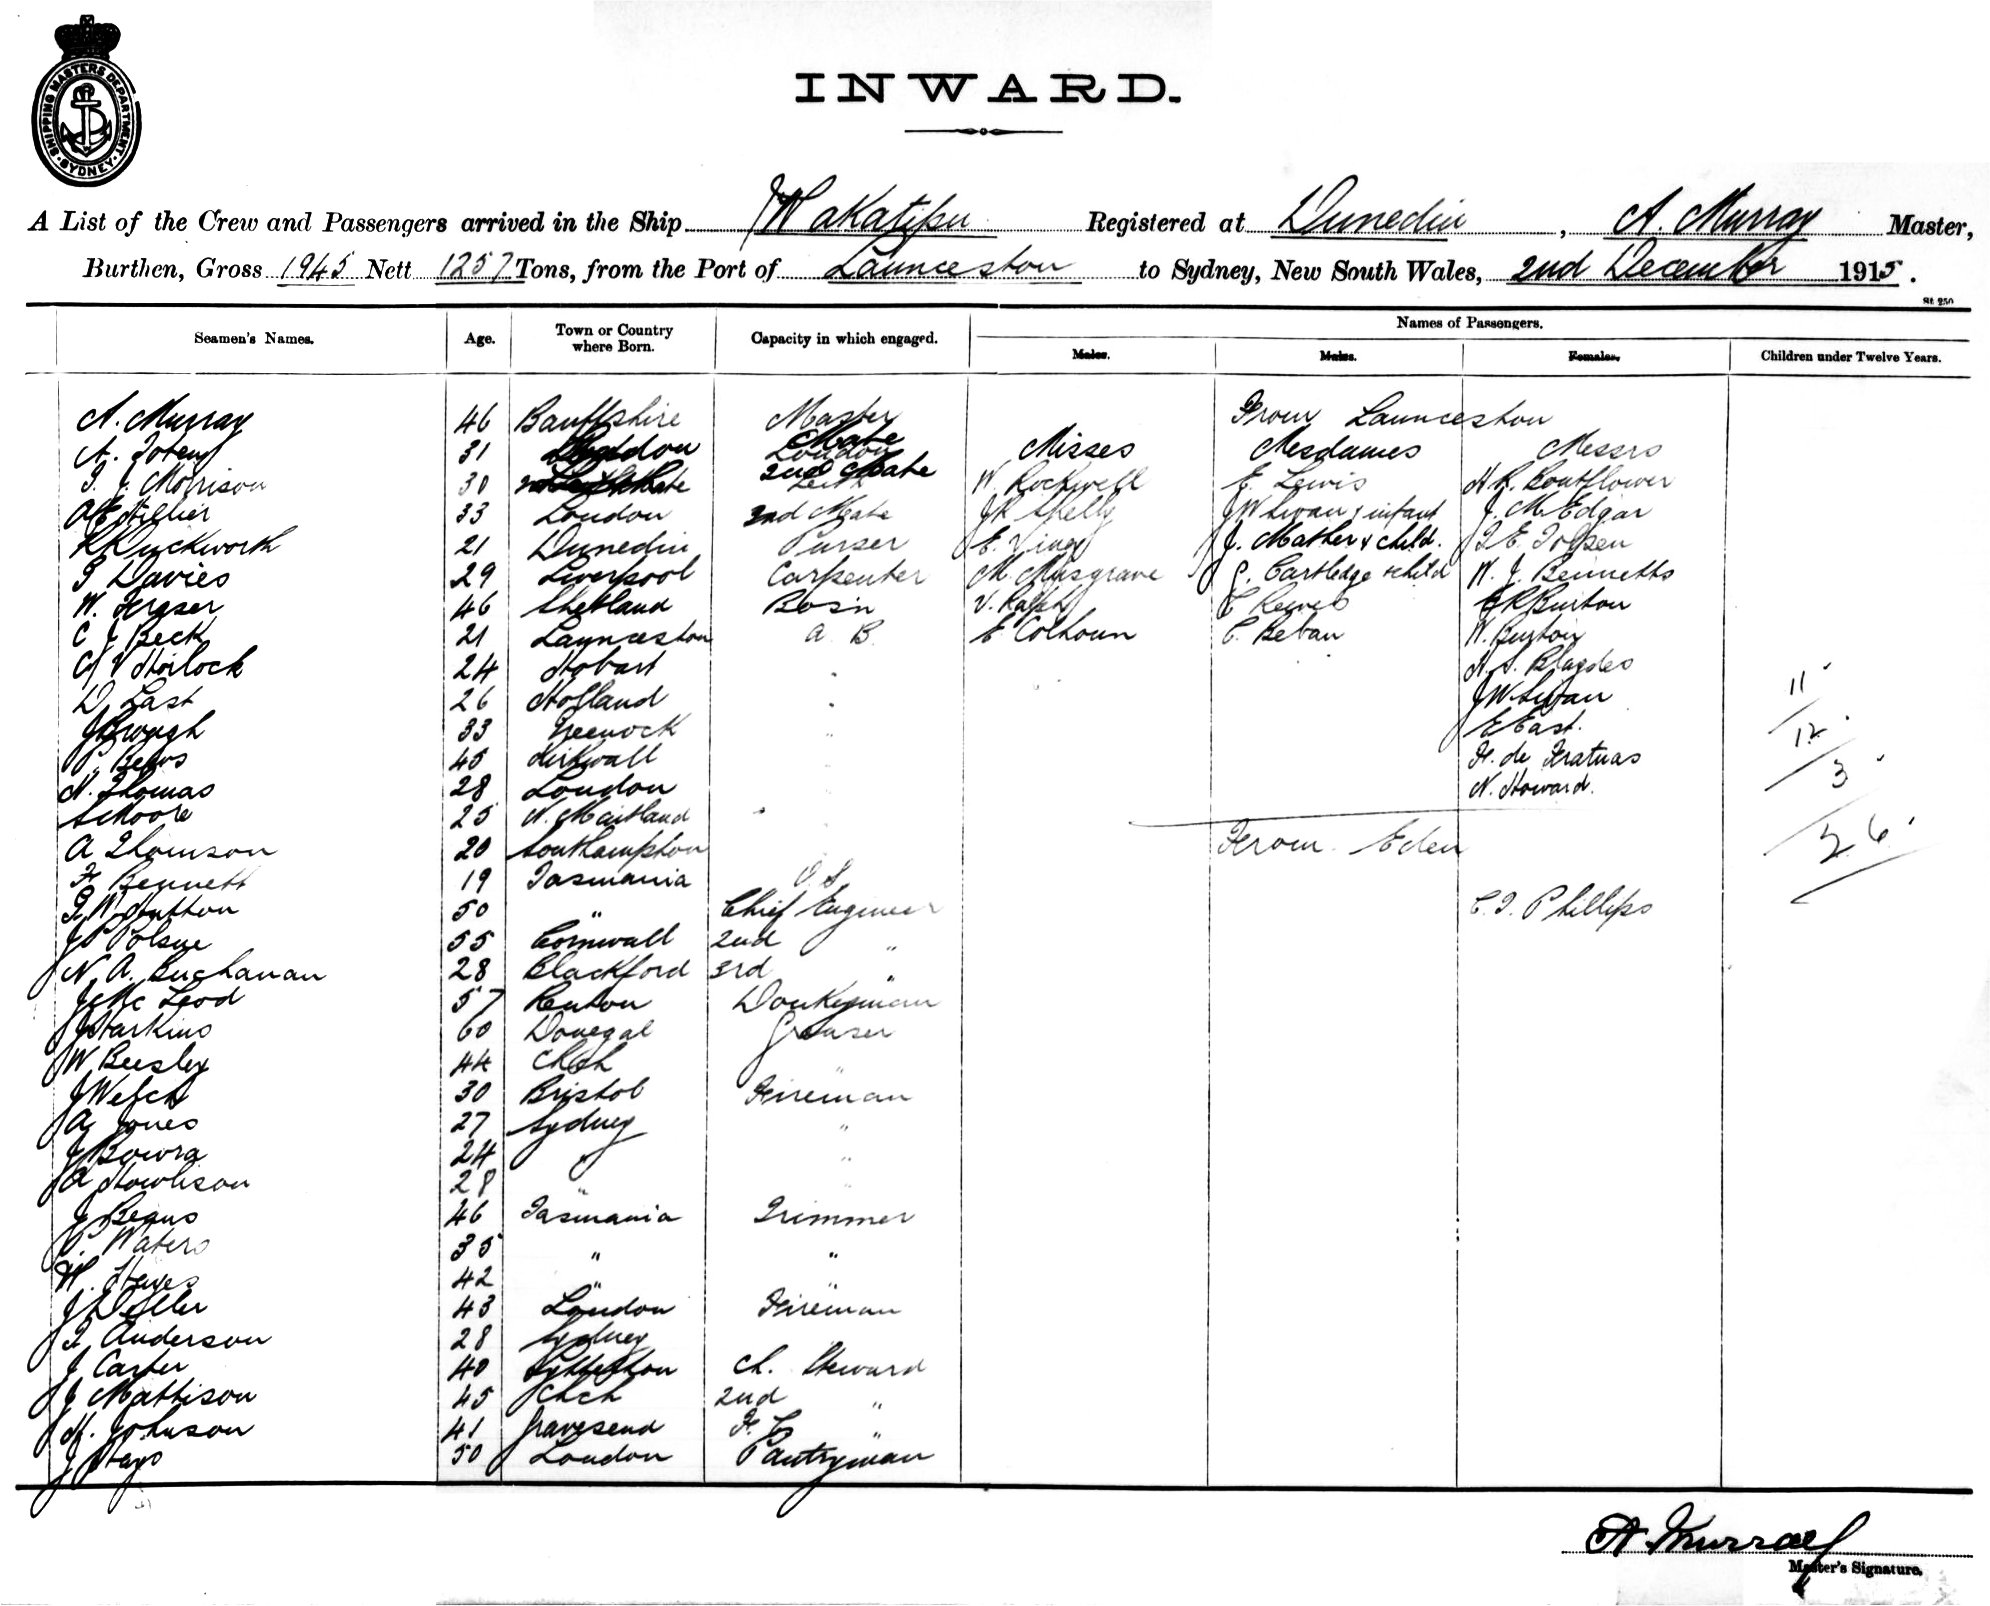 INWARD.
SHIPPING MASTERS DEPARTMENT SYDNEY
A List of the Crew and Passengers arrived in the Ship Wakatipu Registered at Dunedin, A. Murray Master,
Burthen, Gross 1945 Nett 1257 Tons, from the Port of Launceston to Sydney, New South Wales, 2nd December 1915.
St 250
Seamen's Names. Age. Town or Country where Born. Capacity in which engaged. Names of Passengers.
Males. Males. Females. Children under Twelve Years.
A. Murray 46 Banffshire Master From Launceston
A. 31 London Mate Misses Mesdames Messrs
Morrison 30 2nd Mate W. Rockwell E. Lewis H. R. Boutflower
33 London 2nd Mate J R Shelly J W Swan & infant J. M. Edgar
R Duckworth 21 Dunedin Purser E. Viney J. Mather & child.
Davies 29 Liverpool Carpenter M. Musgrave G. Cartledge & child W. J. Bennetts
W. Fraser 46 Shetland Bos'n V. Ralph C Reeves E R Burton
C J Beck 21 Launceston A. B. E Colhoun C. Beban W. Burton
Horlock 24 Hobart H. S. Blagdes
D Last 26 Holland J W Swan 11
J Brough 33 Greenock E East. 12
P. Bews 45 Kirkwall F. de Fratuas 3
N. Thomas 28 London N. Howard.
S Moore 25 N. Maitland
A Thomson 20 Southampton From Eden 26
F Bennett 19 Tasmania O. S.
Hutton 50 " Chief Engineer C. I. Phillips
J P Polsue 55 Cornwall 2nd "
N. A. Buchanan 28 Blackford 3rd "
J McLeod 57 Renton Donkeyman
J Harkins 60 Donegal Greaser
W Beesley 44 Chch "
J Welch 30 Bristol Fireman
A Jones 27 Sydney "
J Bowra 24 " "
A Howlison 28 " "
J Begns 46 Tasmania Trimmer
P. Waters 35 " "
W. Hayes 42 " "
J Deller 43 London Fireman
Anderson 28 Sydney
J Carter 40 Lyttelton Ch. Steward
J Mattison 45 Chch 2nd "
H. Johnson 41 Gravesend F. C. "
J Hays 50 London Pantryman
A. Murray
Master's Signature.